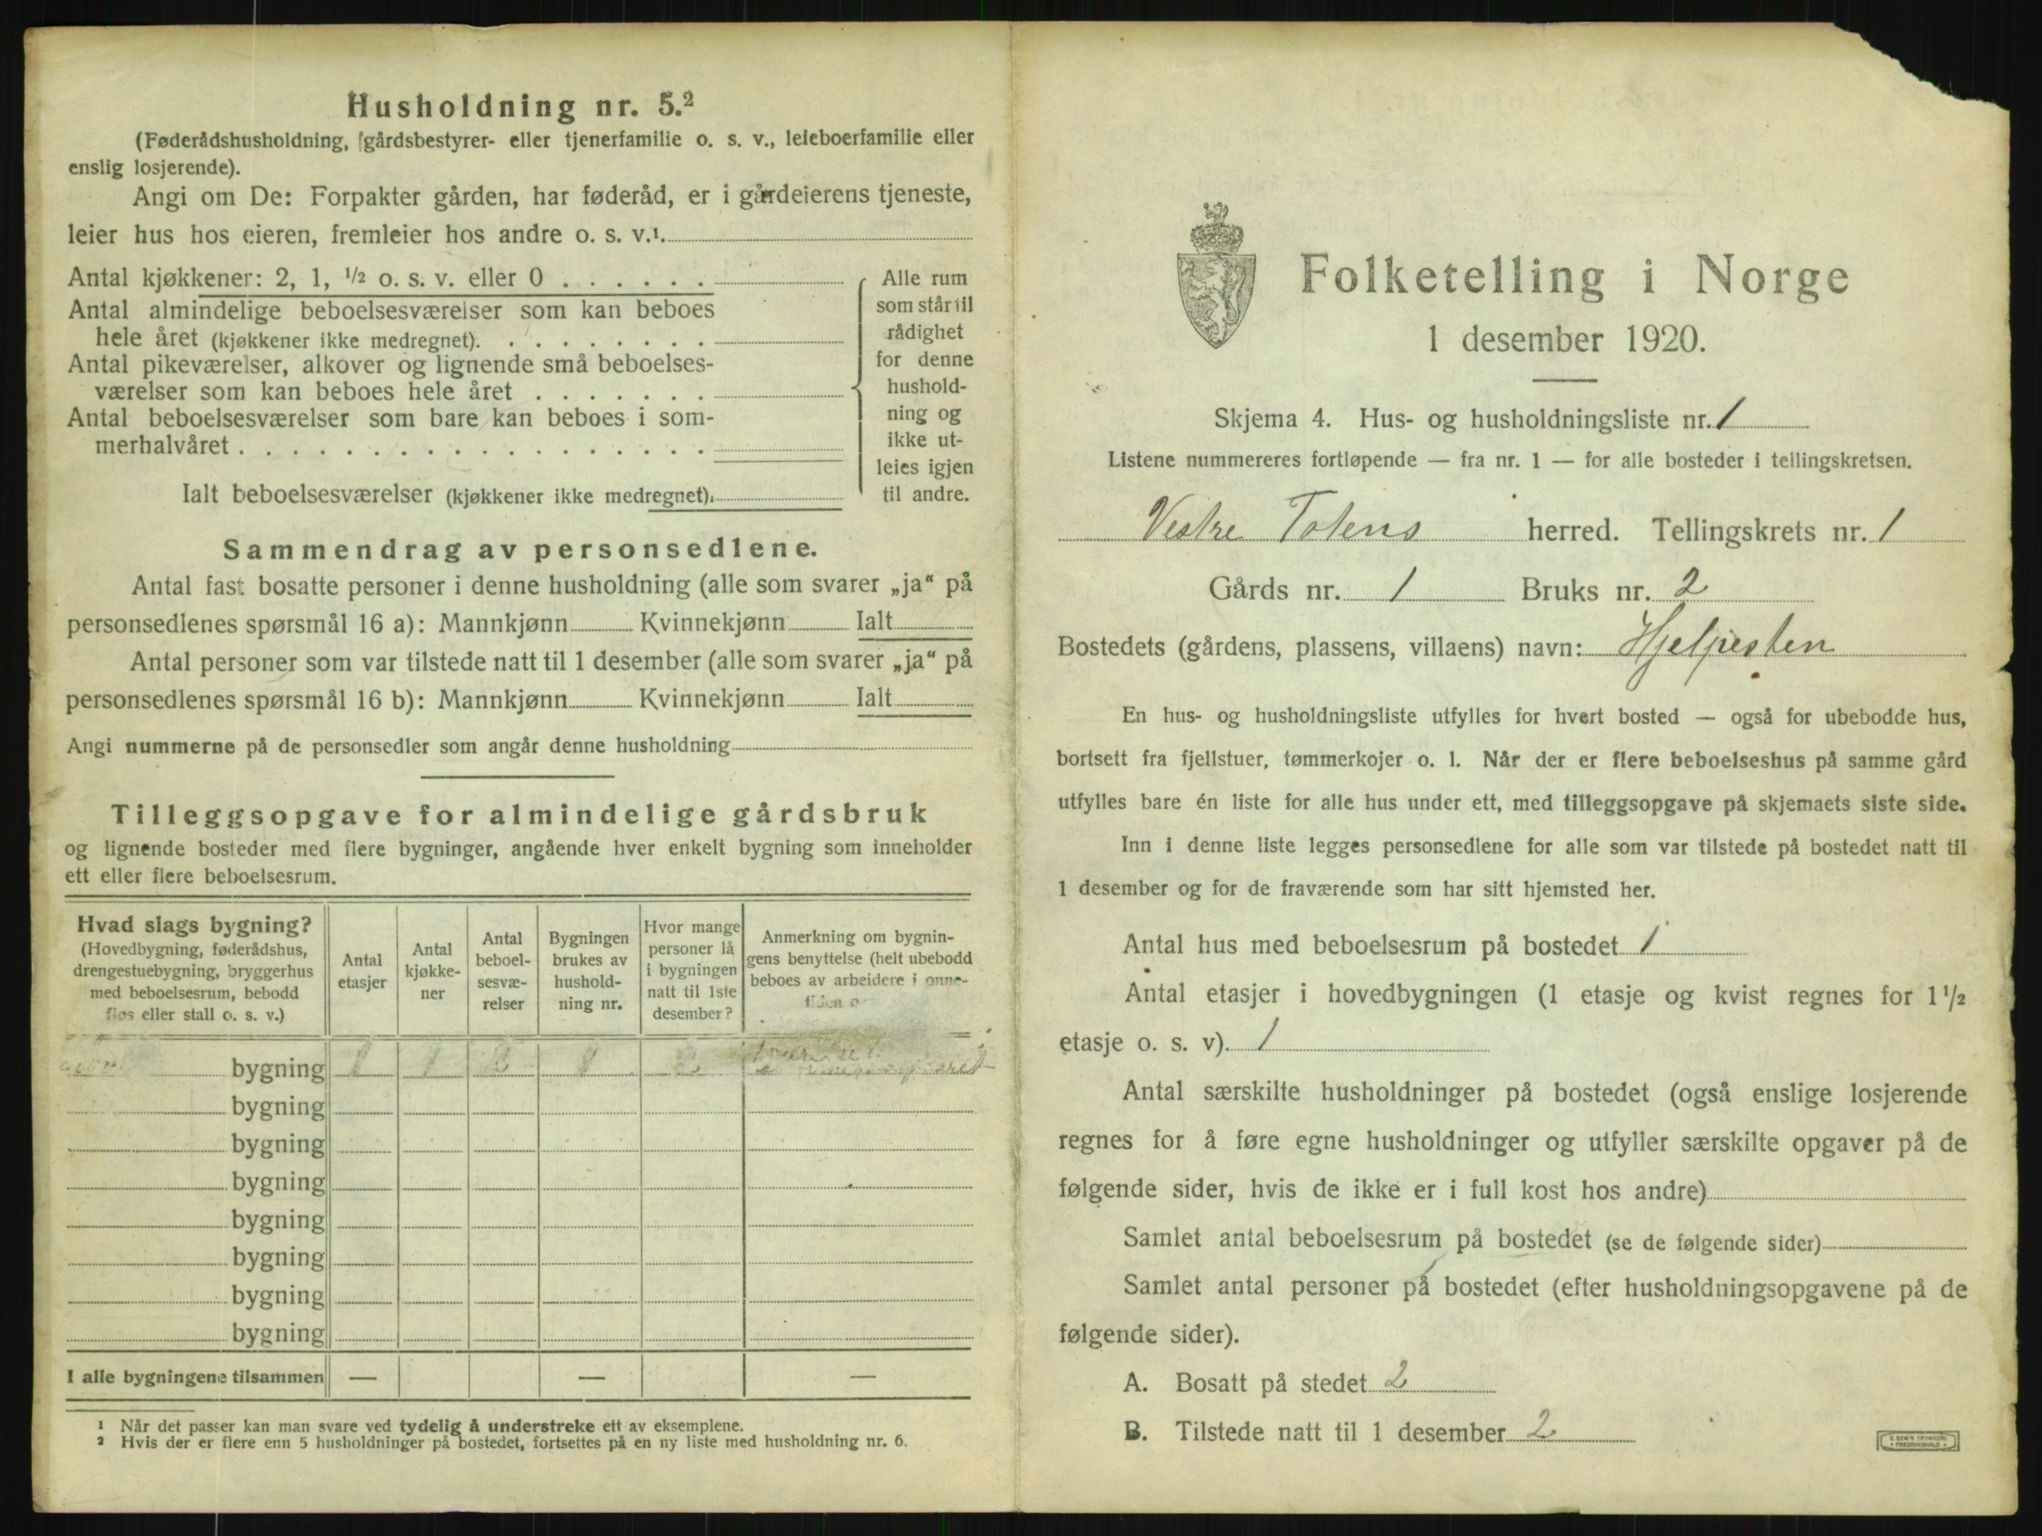 Husholdning nr. 5.²
(Føderådshusholdning, gårdsbestyrer- eller tjenerfamilie o. s. v., leieboerfamilie eller
enslig losjerende).
Angi om De: Forpakter gården, har føderåd, er i gårdeierens tjeneste,
leier hus hos eieren, fremleier hos andre o. s. v.¹.
Antal kjøkkener: 2, 1, ½ o. s. v. eller 0
Antal almindelige beboelsesværelser som kan beboes
hele året (kjøkkener ikke medregnet).
Antal pikeværelser, alkover og lignende små beboelses-
værelser som kan beboes hele året
Antal beboelsesværelser som bare kan beboes i som-
merhalvåret
Ialt beboelsesværelser (kjøkkener ikke medregnet).
Alle rum
som står til
rådighet
for denne
hushold-
ning og
ikke ut-
leies igjen
til andre.
Sammendrag av personsedlene.
Antal fast bosatte personer i denne husholdning (alle som svarer „ja“ på
personsedlenes spørsmål 16 a): Mannkjønn Kvinnekjønn Ialt
Antal personer som var tilstede natt til 1 desember (alle som svarer „ja“ på
personsedlenes spørsmål 16 b): Mannkjønn Kvinnekjønn Ialt
Angi nummerne på de personsedler som angår denne husholdning
Tilleggsopgave for almindelige gårdsbruk
og lignende bosteder med flere bygninger, angående hver enkelt bygning som inneholder
ett eller flere beboelsesrum.
Hvad slags bygning?
(Hovedbygning, føderådshus,
drengestuebygning, bryggerhus
med beboelsesrum, bebodd
fløs eller stall o. s. v.)
Antal
etasjer
Antal
kjøkke-
ner
Antal
beboel-
sesvæ-
relser
Bygningen
brukes av
hushold-
ning nr.
Hvor mange
personer lå
i bygningen
natt til 1ste
desember?
Anmerkning om bygnin-
gens benyttelse (helt ubebodd
beboes av arbeidere i onne-
tiden o
bygning 1 1 2 1 2
bygning
bygning
bygning
bygning
bygning
bygning
bygning
I alle bygningene tilsammen — — —
¹ Når det passer kan man svare ved tydelig å understreke ett av eksemplene.
² Hvis der er flere enn 5 husholdninger på bostedet, fortsettes på en ny liste med husholdning nr. 6.
Folketelling i Norge
1 desember 1920.
Skjema 4. Hus- og husholdningsliste nr. 1
Listene nummereres fortløpende — fra nr. 1 — for alle bosteder i tellingskretsen.
Vestre Totens herred. Tellingskrets nr. 1
Gårds nr. 1 Bruks nr. 2
Bostedets (gårdens, plassens, villaens) navn: Hjelpesten
En hus- og husholdningsliste utfylles for hvert bosted — også for ubebodde hus,
bortsett fra fjellstuer, tømmerkojer o. l. Når der er flere beboelseshus på samme gård
utfylles bare én liste for alle hus under ett, med tilleggsopgave på skjemaets siste side.
Inn i denne liste legges personsedlene for alle som var tilstede på bostedet natt til
1 desember og for de fraværende som har sitt hjemsted her.
Antal hus med beboelsesrum på bostedet 1
Antal etasjer i hovedbygningen (1 etasje og kvist regnes for 1½
etasje o. s. v). 1
Antal særskilte husholdninger på bostedet (også enslige losjerende
regnes for å føre egne husholdninger og utfyller særskilte opgaver på de
følgende sider, hvis de ikke er i full kost hos andre)
Samlet antal beboelsesrum på bostedet (se de følgende sider)
Samlet antal personer på bostedet (efter husholdningsopgavene på de
følgende sider).
A. Bosatt på stedet 2
B. Tilstede natt til 1 desember 2